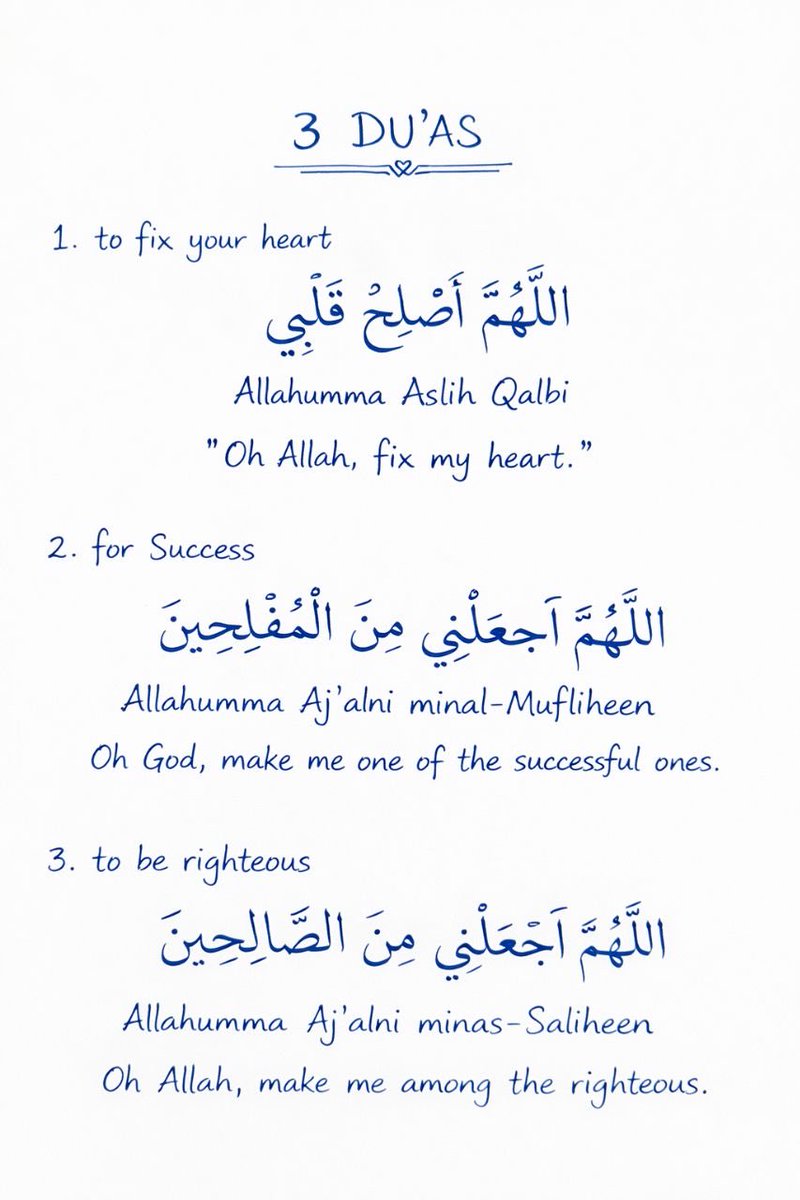 3 DU'AS
1. to fix your heart
اللَّهُمَّ أَصْلِحْ قَلْبِي
Allahumma Aslih Qalbi
"Oh Allah, fix my heart."
2. for Success
اللَّهُمَّ اَجعَلْنِي مِنَ الْمُفْلِحِينَ
Allahumma Aj'alni minal-Mufliheen
Oh God, make me one of the successful ones.
3. to be righteous
اللَّهُمَّ اَجْعَلْنِي مِنَ الصَّالِحِينَ
Allahumma Aj'alni minas-Saliheen
Oh Allah, make me among the righteous.